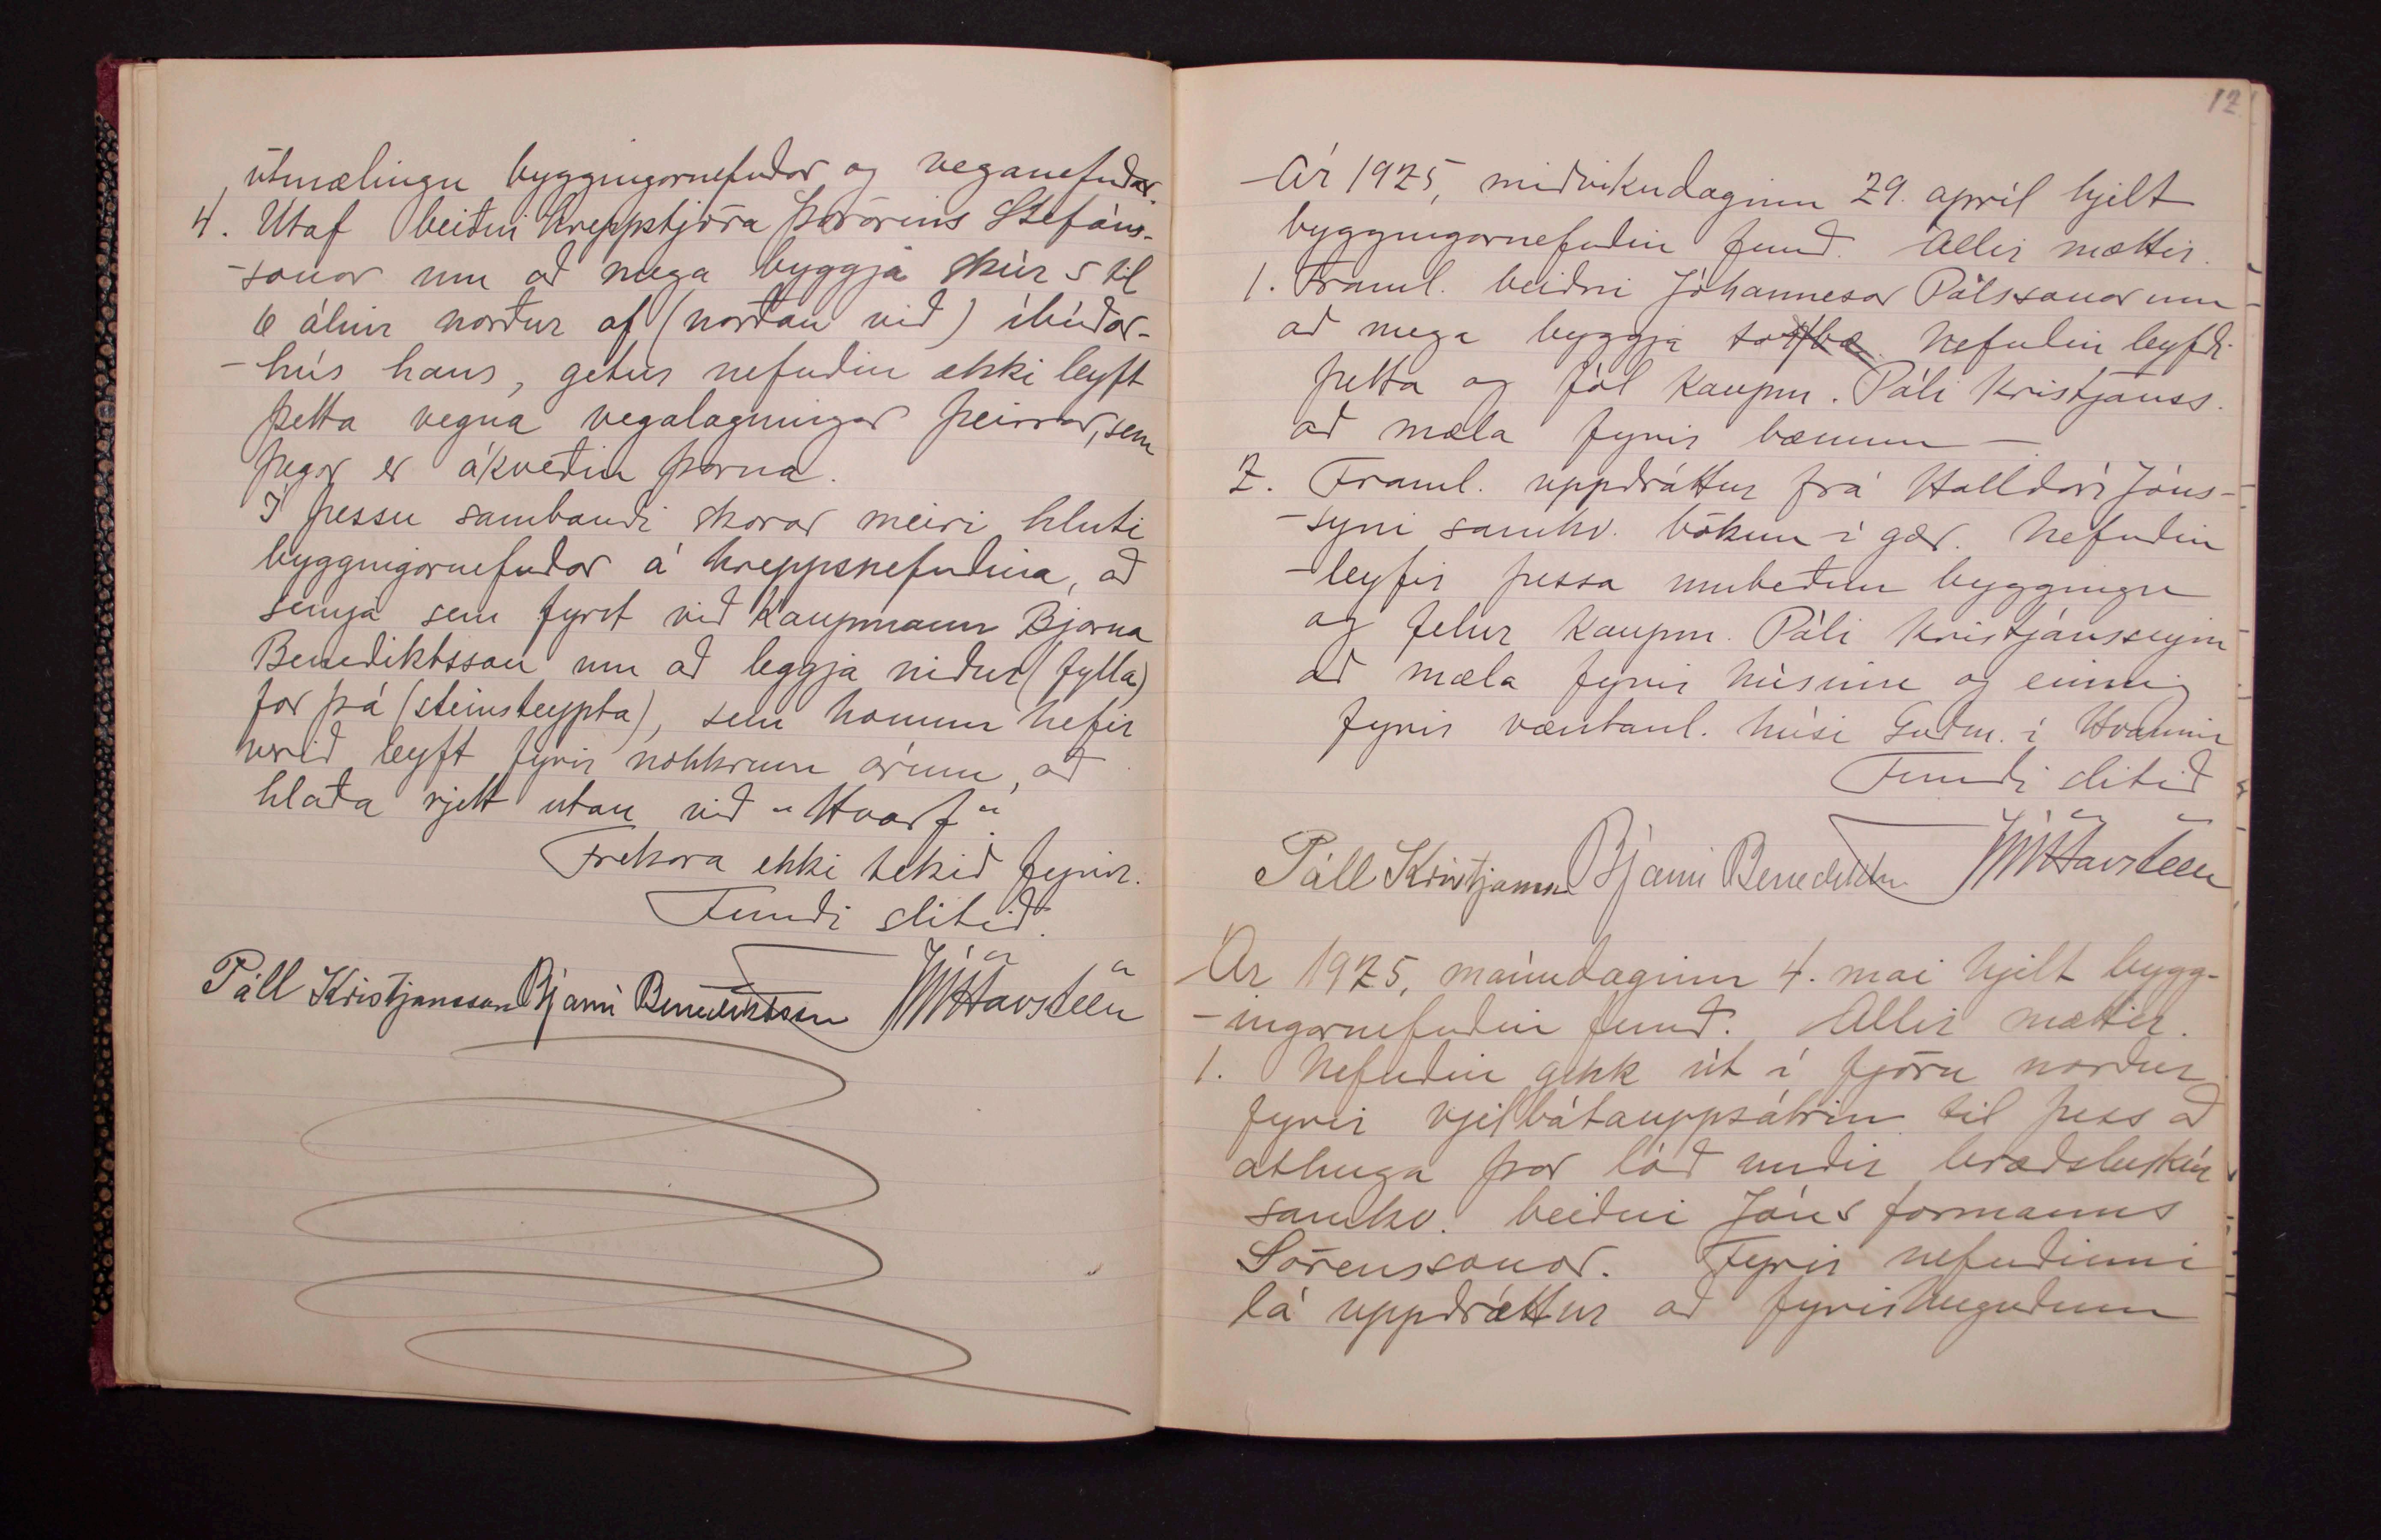 útmælingu byggingarnefndar og veganefndar.
4. Útaf beiðni hreppstjóra Þórarins Stefáns-
-sonar um að mega byggja skúr 5 til
6 álnir norður af (norðan við) íbúðar-
-hús hans, getur nefndin ekki leyft
þetta vegna vegalagningar þeirrar, sem
þegar er ákveðin þarna.
Í þessu sambandi skorar meiri hluti
byggingarnefndar á hreppsnefndina, að
semja sem fyrst við kaupmann Bjarna
Benediktsson um að leggja niður (fylla)
for þá (steinsteypta), sem honum hefir
verið leyft fyrir nokkrum árum, að
hlaða rjett utan við "Hvarf"
Frekara ekki tekið fyrir.
Fundi slitið.
Páll Kristjánsson Bjarni Benediktsson JHHavsteen
12
Ár 1925, miðvikudaginn 29. apríl hjelt
byggingarnefndin fund. Allir mættir.
1. Framl. beiðni Jóhannesar Pálssonar um
að mega byggja torfbæ. Nefndin leyfði
þetta og fól kaupm. Páli Kristjánss.
að mæla fyrir bænum —
2. Framl. uppdráttur frá Halldóri Jóns-
-syni samkv. bókun í gær. Nefndin
-leyfir þessa umbeðnu byggingu
og felur kaupm. Páli Kristjánssyni
að mæla fyrir húsinu og einnig
fyrir væntanl. húsi Guðm. í Hvammi
Fundi slitið
Páll Kristjánsson Bjarni Benediktsson JHHavsteen
Ár 1925, mánudaginn 4. mai hjelt bygg-
-ingarnefndin fund. Allir mættir.
1. Nefndin gekk út í fjöru norður
fyrir vjelbátauppsátrin til þess að
athuga þar lóð undir bræðsluskúr
samkv. beiðni Jóns formanns
Sörenssonar. Fyrir nefndinni
lá uppdráttur að fyrirhuguðum